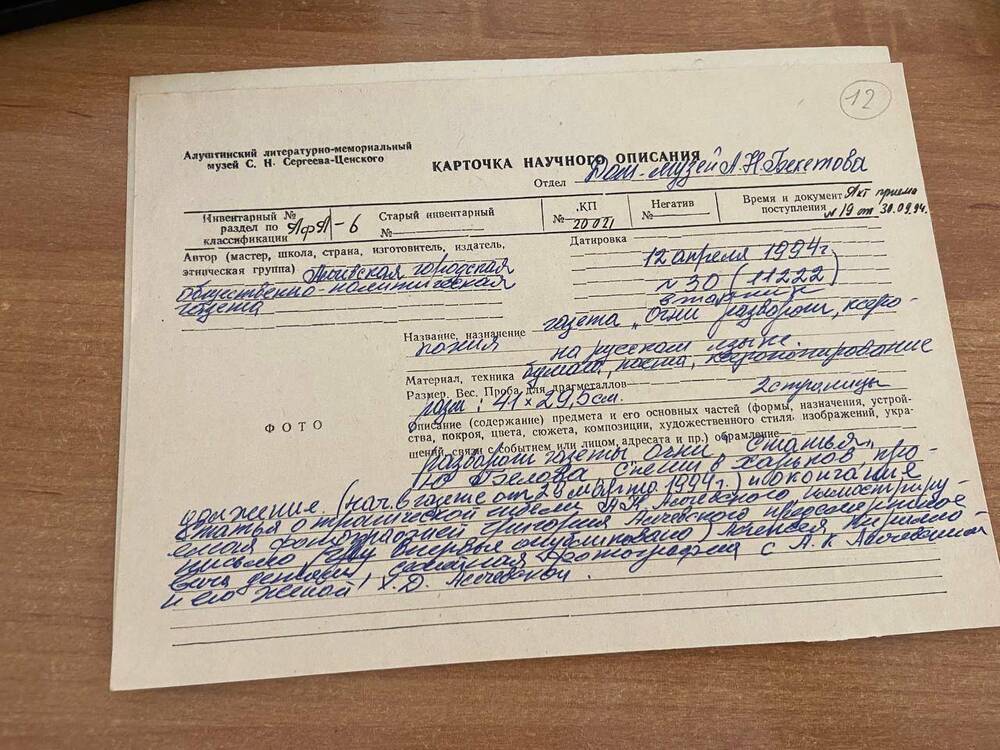 12
Алуштинский литературно-мемориальный
музей С. Н. Сергеева-Ценского
КАРТОЧКА НАУЧНОГО ОПИСАНИЯ
Отдел Дом-музей А.Н.Бекетова
Инвентарный №
раздел по
классификации АфА-6
Старый инвентарный
№
КП
№ 20021
Негатив
№
Время и документ Акт приема
поступления №19 от 30.09.94.
Автор (мастер, школа, страна, изготовитель, издатель,
этническая группа) городская
общественно-политическая
газета
Датировка
12 апреля 1994г
№30 (11222)
вторник
Название, назначение газета "Огни разворот, ксеро-
копия на русском языке.
Материал, техника бумага, ксерокопирование
Размер. Вес. Проба для драгметаллов
разм: 41 х 29,5 см. 2 страницы
ФОТО
Описание (содержание) предмета и его основных частей (формы, назначения, устрой-
ства, покроя, цвета, сюжета, композиции, художественного стиля, изображений, укра-
шений, связи с событием или лицом, адресата и пр.) обрамление
разворот газеты Огни. статья
Ю. Белова в Харьков, про-
должение (нач. в газете от марта 1994г.) и окончание
статья о трагической гибели А.К. Алчевского иллюстриру-
емая фотографией Григория Алчевского предсмертное
письмо впервые опубликовано) Алексея Кирилло-
вича семейная фотография с А.К Алчевским
и его женой Х.Д. Алчевской.